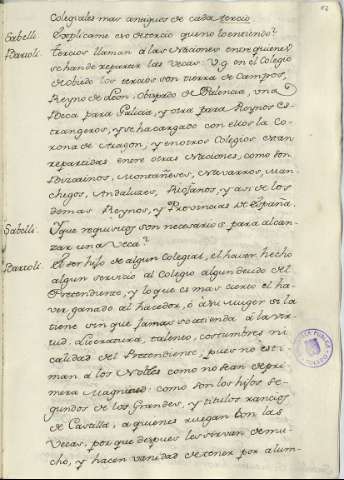 82
Colegiales mas antiguos de cada tercio.
Sabelli. Explicame eso de tercio que no lo entiendo?
Bartoli. Tercios llaman á las Naciones entre quienes
se han de repartir las Vecas: V.g. en el Colegio
de Obiedo los tercios son tierra de Campos,
Reyno de Leon, Obispado de Palencia, una
Beca para Galicia, y otra para Reynos Es-
trangeros, y se ha cargado con ellos la Co-
rona de Aragon, y en otros Colegios estan
repartidas entre otras Naciones, como son
Vizcainos, Montañeses, Navarros, Man-
chegos, Andaluzes, Riojanos, y asi de los
demas Reynos, y Provincias de España.
Sabelli. Y que requisitos son necesarios para alcan-
zar una Veca?
Bartoli. El ser hijo de algun Colegial, el haver hecho
algun servicio al Colegio algun deudo del
Pretendiente, y lo que es mas cierto el ha-
ver ganado al hacedor, ó á su Muger si la
tiene sin que jamas se atienda á la vir-
tud, Literatura, talento, costumbres ni
calidad del Pretendiente, pues no esti-
man á los Nobles como no sean de pri-
mera Magnitud: como son los hijos se-
gundos de los Grandes, y titulos rancios
de Castilla, á quienes ruegan con las
Vecas, por que despues les sirvan de mu-
cho, y hacen vanidad de tener por alum-